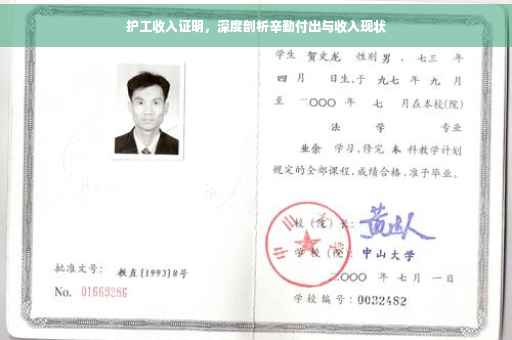 护工收入证明，深度剖析辛勤付出与收入现状
学生 贺文龙 性别 男，七三 年
四 月 日生，于 九七 年 九 月
至 二〇〇〇 年 七 月在本校(院)
法 学 专业
业余 学习，修完 本 科教学计划
规定的全部课程，成绩合格，准予毕业。
校（院）长：
学 校（院）：中山大学
二〇〇〇 年 七 月 一 日
学校编号：0032482
批准文号：教直[1993]8号
No. 01663286